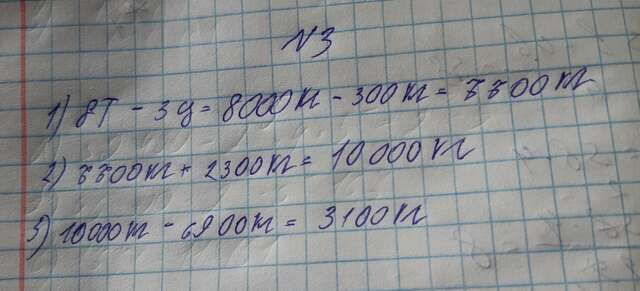 N3
1) 8т - 3ц = 8000кг - 300кг = 7700кг
2) 7700кг + 2300кг = 10000кг
3) 10000кг - 6900кг = 3100кг